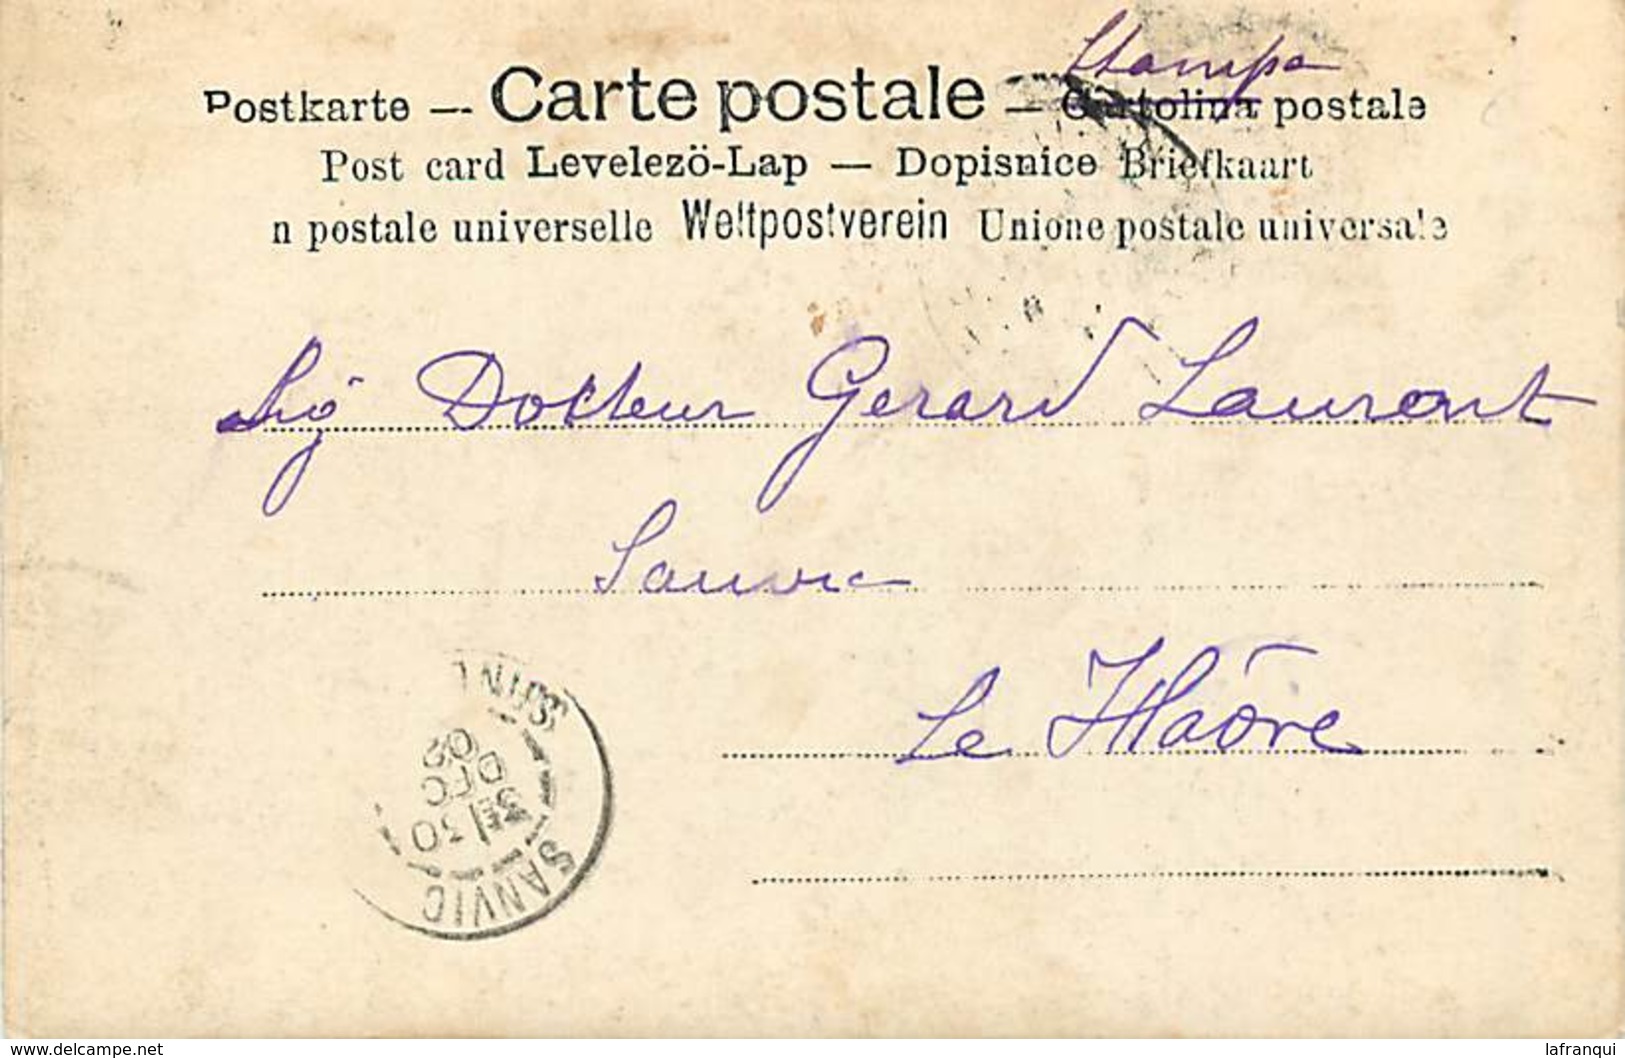 Stampa
Postkarte — Carte postale — Cartolina postale
Post card Levelezö-Lap — Dopisnice Briefkaart
n postale universelle Weltpostverein Unione postale universale
Sig Docteur Gerard Laurent
Sanvic
Le Hâvre
SANVIC
30
DEC
02
SEINE
www.delcampe.net
lafranqui